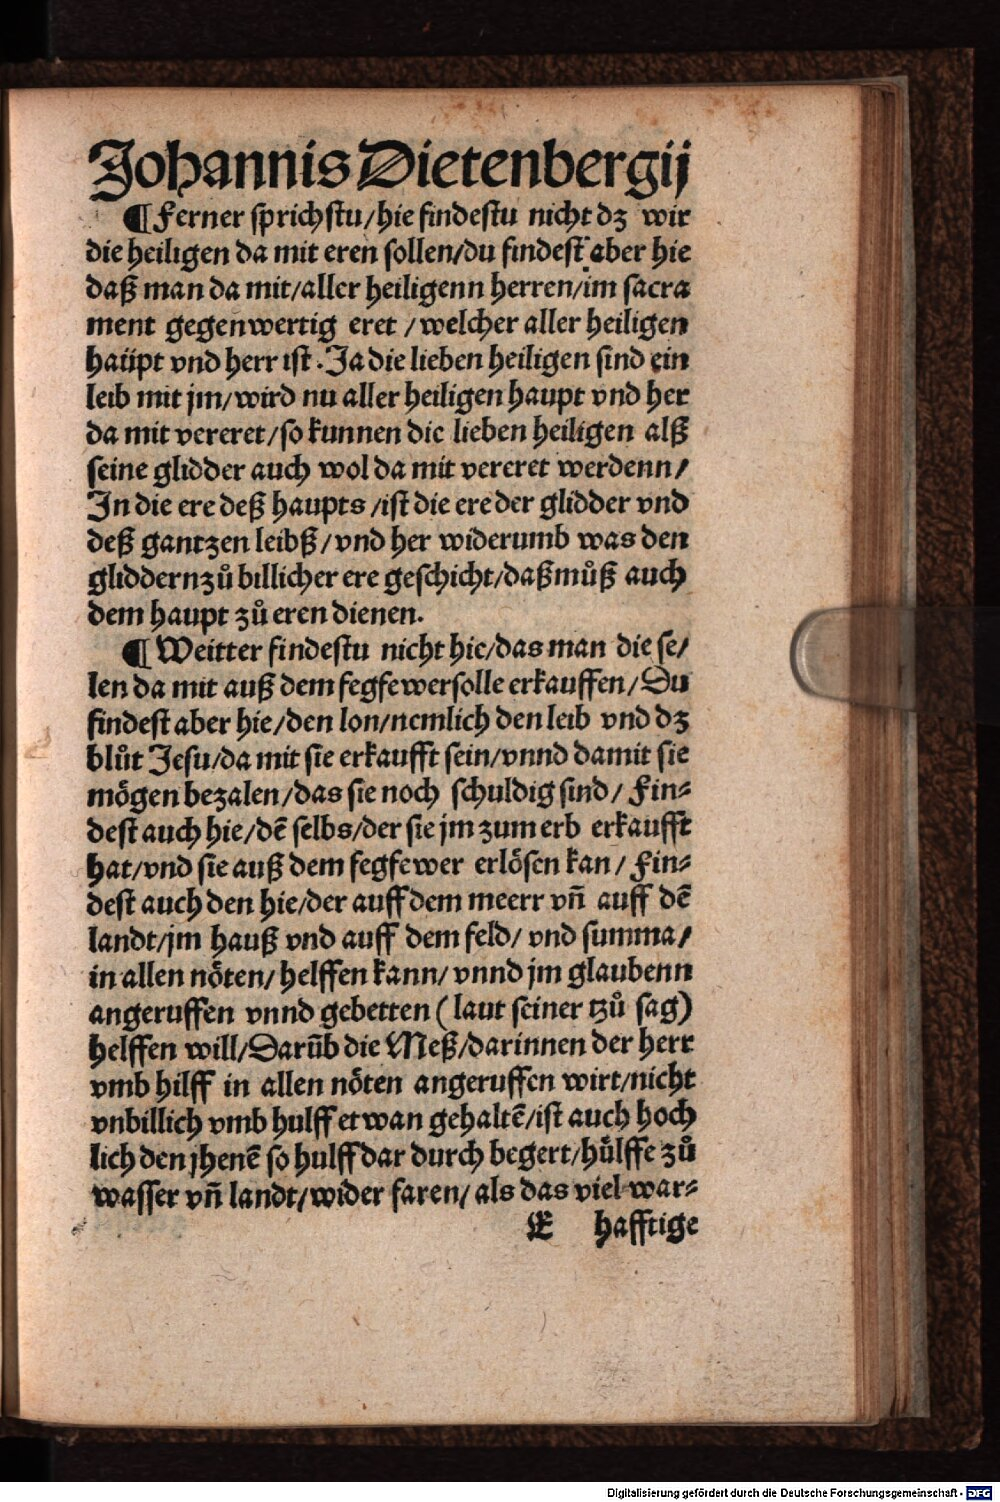 Johannis Dietenbergij
¶ Ferner sprichstu/hie findestu nicht dz wir
die heiligen da mit eren sollen/du findest aber hie
daß man da mit/aller heiligenn herren/im sacra
ment gegenwertig eret/welcher aller heiligen
haüpt vnd herr ist. Ja die lieben heiligen sind ein
leib mit jm/wird nu aller heiligen haupt vnd her
da mit vereret/so kunnen die lieben heiligen alß
seine glidder auch wol da mit vereret werdenn/
In die ere deß haupts/ist die ere der glidder vnd
deß gantzen leibß/vnd her widerumb was den
gliddern zů billicher ere geschicht/daß můß auch
dem haupt zů eren dienen.
¶ Weitter findestu nicht hie/das man die se/
len da mit auß dem fegfewer solle erkauffen/Du
findest aber hie/den lon/nemlich den leib vnd dz
blůt Jesu/da mit sie erkaufft sein/vnnd damit sie
mögen bezalen/das sie noch schuldig sind/Fin⸗
dest auch hie/dē selbs/der sie jm zum erb erkaufft
hat/vnd sie auß dem fegfewer erlösen kan/Fin⸗
dest auch den hie/der auff dem meerr vn̄ auff dē
landt/jm hauß vnd auff dem feld/vnd summa/
in allen nöten/helffen kann/vnnd jm glaubenn
angeruffen vnnd gebetten (laut seiner tzů sag)
helffen will/Darūb die Meß/darinnen der herr
vmb hilff in allen nöten angeruffen wirt/nicht
vnbillich vmb hulff etwan gehaltē/ist auch hoch
lich den jhenē so hulff dar durch begert/hülffe zů
wasser vn̄ landt/wider faren/als das viel war⸗
E hafftige
Digitalisierung gefördert durch die Deutsche Forschungsgemeinschaft - DFG